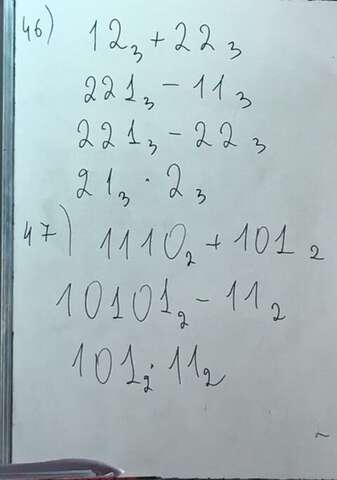 46) 12₃ + 22₃
221₃ - 11₃
221₃ - 22₃
21₃ · 2₃
47) 1110₂ + 101₂
10101₂ - 11₂
101₂ · 11₂